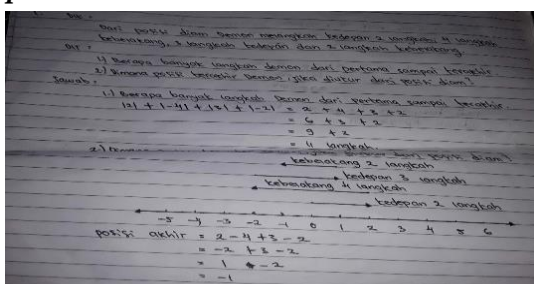 Dik :
Dari posisi diam Demon melangkah kedepan 2 langkah 4 langkah
kebelakang, 3 langkah kedepan dan 2 langkah kebelakang.
Dit :
1) Berapa banyak langkah demon dari pertama sampai terakhir.
2) Dimana posisi terakhir Demon, jika diukur dari posisi diam?
Jawab :
1) Berapa banyak langkah Demon dari pertama sampai terakhir.
|2| + |-4| + |3| + |-2| = 2 + 4 + 3 + 2
= 6 + 3 + 2
= 9 + 2
= 11 langkah.
2) dari posisi diam?
kebelakang 2 langkah
kedepan 3 langkah
kebelakang 4 langkah
kedepan 2 langkah
-5 -4 -3 -2 -1 0 1 2 3 4 5 6
posisi akhir = 2 - 4 + 3 - 2
= -2 + 3 - 2
= 1 - 2
= -1